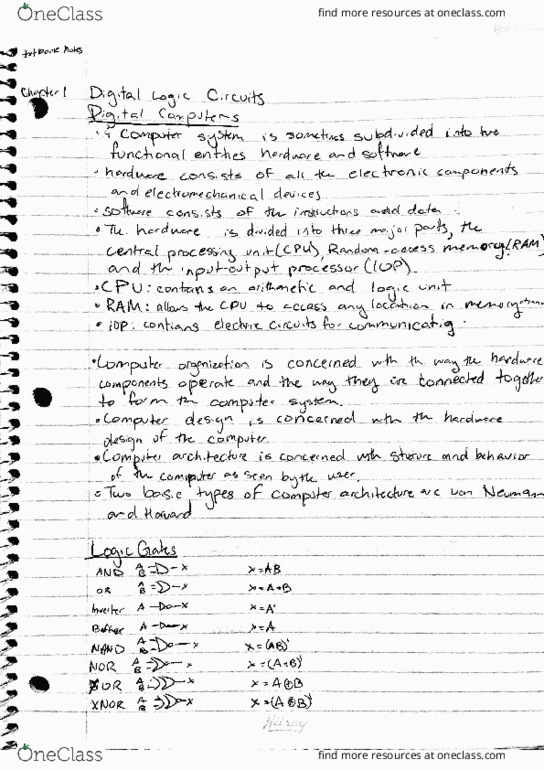 OneClass
find more resources at oneclass.com
textbook notes
Chapter 1 Digital Logic Circuits
Digital Computers
• Computer system is sometimes subdivided into two
functional entities hardware and software
• hardware consists of all the electronic components
and electromechanical devices
• software consists of the instructions and data
• The hardware is divided into three major parts, the
central processing unit (CPU), Random-access memory (RAM)
and the input-output processor (IOP).
• CPU: contains an arithmetic and logic unit
• RAM: allows the CPU to access any location in memory
• IOP: contians electric circuits for communicatig.
• Computer organization is concerned with th way the hardware
components operate and the way they are connected together
to form the computer system.
• Computer design is concerned with the hardware
design of the computer.
• Computer architecture is concerned with and behavior
of the computer as seen by the user.
• Two basic types of computer architecture are von Neumann
and
Logic Gates
AND A B x x = AB
OR A B x x = A+B
Inverter A x x = A'
Buffer A x x = A
NAND A B x x = (AB)'
NOR A B x x = (A+B)'
XOR A B x x = A⊕B
XNOR A B x x = (A⊕B)'
OneClass
find more resources at oneclass.com